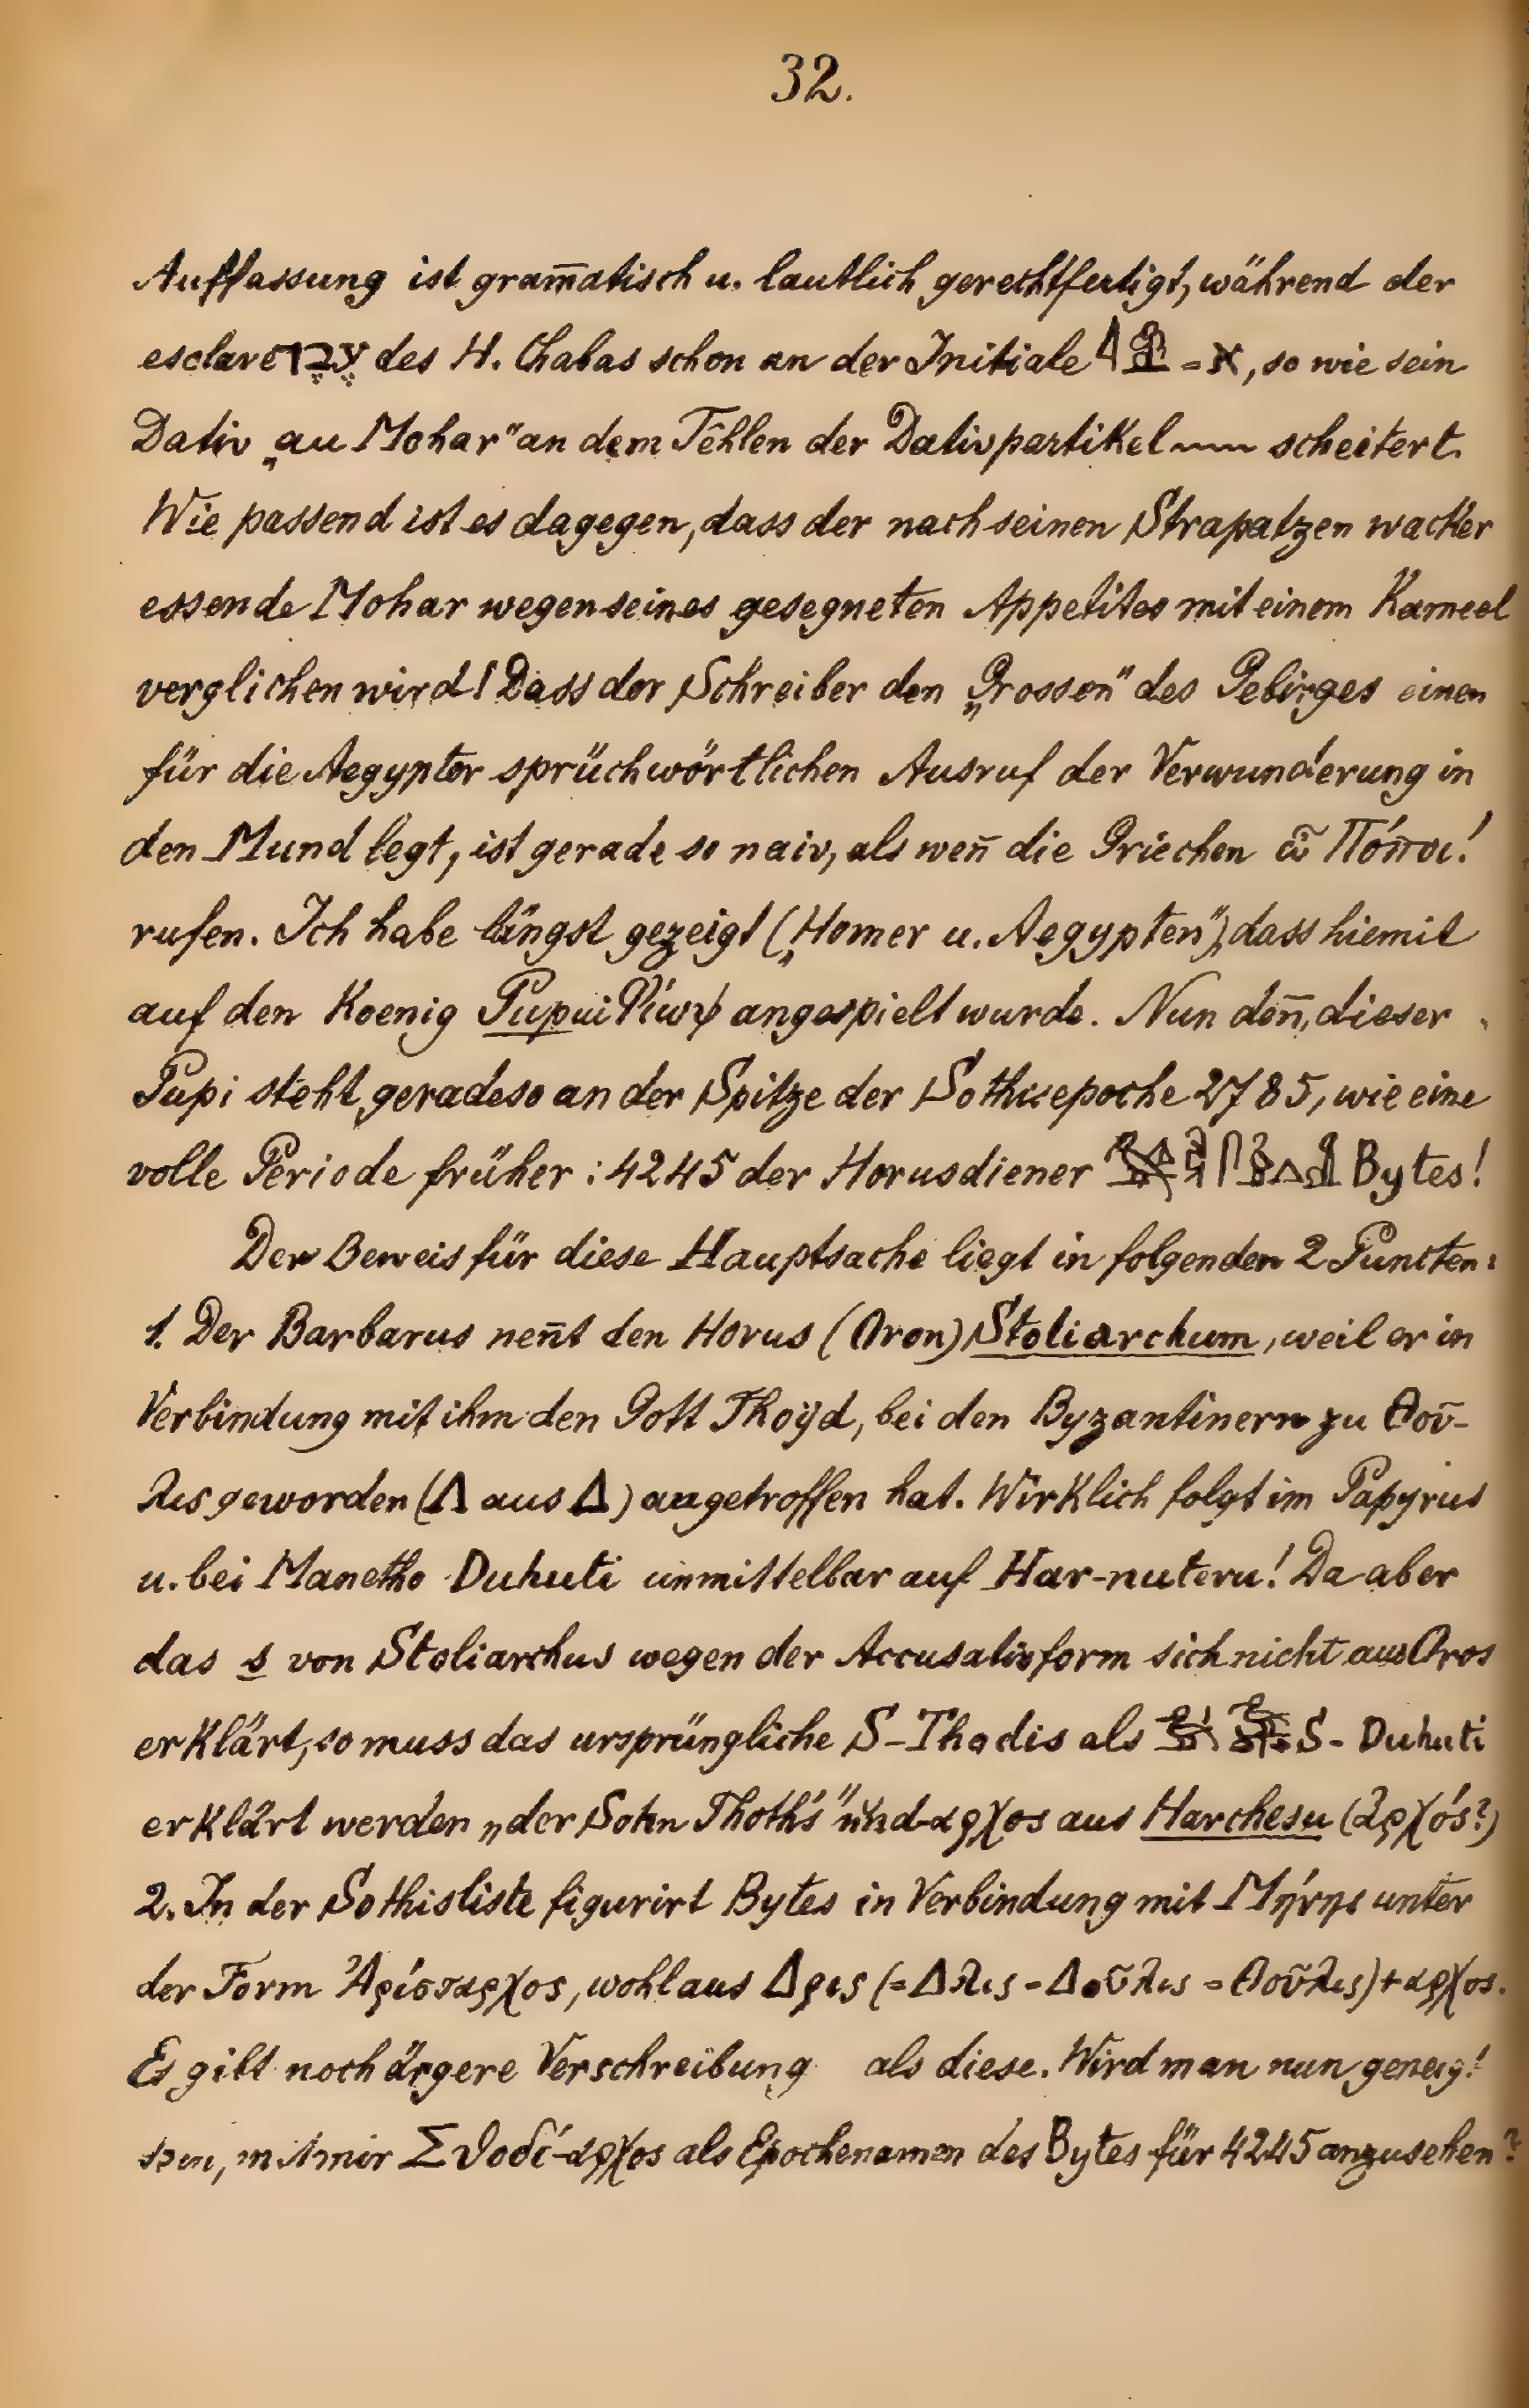 32.
Auffassung ist gram̅atisch u. lautlich gerechtfertigt, während der
esclave עבד des H. Chabas schon an der Initiale = א, so wie sein
Dativ „au Mohar" an dem Fehlen der Dativpartikel scheitert.
Wie passend ist es dagegen, dass der nach seinen Strapatzen wacker
essende Mohar wegen seines gesegneten Appetites mit einem Kameel
verglichen wird! Dass der Schreiber den „Grossen" des Gebirges einen
für die Aegypter sprüchwörtlichen Ausruf der Verwunderung in
den Mund legt, ist gerade so naiv, als wen̅ die Griechen ὦ Πόποι!
rufen. Ich habe längst gezeigt („Homer u. Aegypten"), dass hiemit
auf den Koenig Pupui angespielt wurde. Nun den̅, dieser
Pupi steht geradeso an der Spitze der Sothisepoche 2785, wie eine
volle Periode früher: 4245 der Horusdiener Bytes!
Der Beweis für diese Hauptsache liegt in folgenden 2 Puncten:
1. Der Barbarus nen̅t den Horus (Oron) Stoliarchum, weil er in
Verbindung mit ihm den Gott Thoÿd, bei den Byzantinern zu Θοῦ-
λις geworden (Λ aus Δ) angetroffen hat. Wirklich folgt im Papyrus
u. bei Manetho Duhuti unmittelbar auf Har-nuteru! Da aber
das s von Stoliarchus wegen der Accusativform sich nicht aus Oros
erklärt, so muss das ursprüngliche S-Thodis als S-Duhuti
erklärt werden „der Sohn Thoth's" und -αρχος aus Harchesu (ἀρχός?)
2. In der Sothisliste figurirt Bytes in Verbindung mit Μήνης unter
der Form Ἀρίσταρχος, wohl aus Δρις (=Δλις = Δοῦλις = Θοῦλις) + αρχος.
Es gibt noch ärgere Verschreibung als diese. Wird man nun geneigt
sein, mit mir Σθοδί-αρχος als Epochenamen des Bytes für 4245 anzusehen?